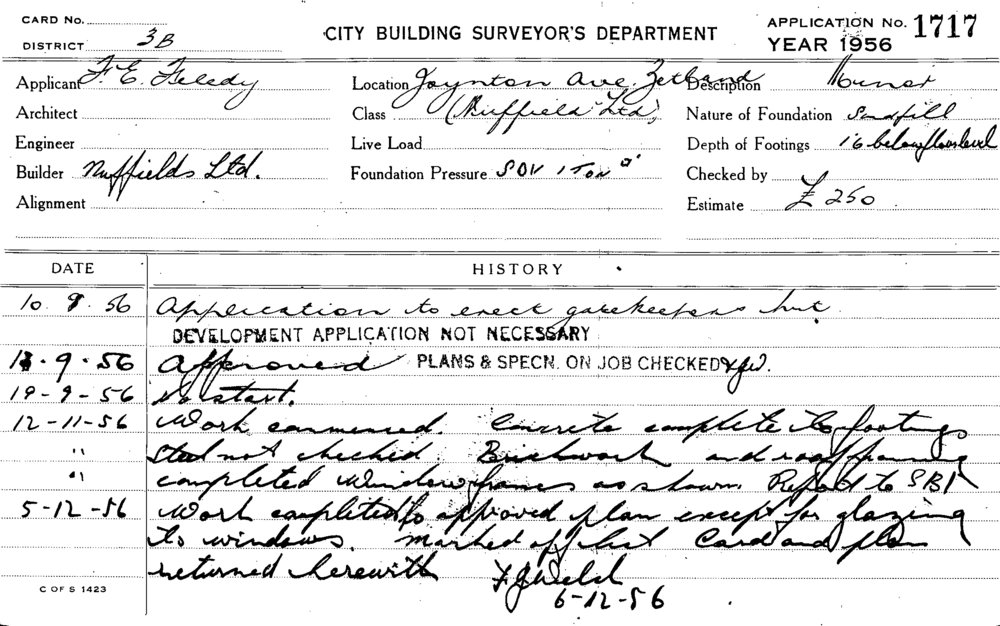 CARD No.
DISTRICT 3B
CITY BUILDING SURVEYOR'S DEPARTMENT
APPLICATION No. 1717
YEAR 1956
Applicant F. E. Feledy
Location Joynton Ave. Zetland
Description Minor
Architect
Class (Nuffield Ltd)
Nature of Foundation Sandfill
Engineer
Live Load
Depth of Footings 16 below floor level
Builder Nuffields Ltd.
Foundation Pressure SOV 1 TON
Checked by
Alignment
Estimate £ 250
DATE HISTORY
10. 9. 56 Application to erect gatekeepers hut.
DEVELOPMENT APPLICATION NOT NECESSARY
13-9-56 Approved PLANS & SPECN. ON JOB CHECKED
19-9-56 No start.
12-11-56 Work commenced. Concrete complete to footings
" Steel not checked. Brickwork and roof framing
" completed Window frames as shown. Report to SBI
5-12-56 Work completed to approved plan except for glazing
to windows. Marked off list Card and plan
returned herewith F J Weld
6-12-56
C OF S 1423